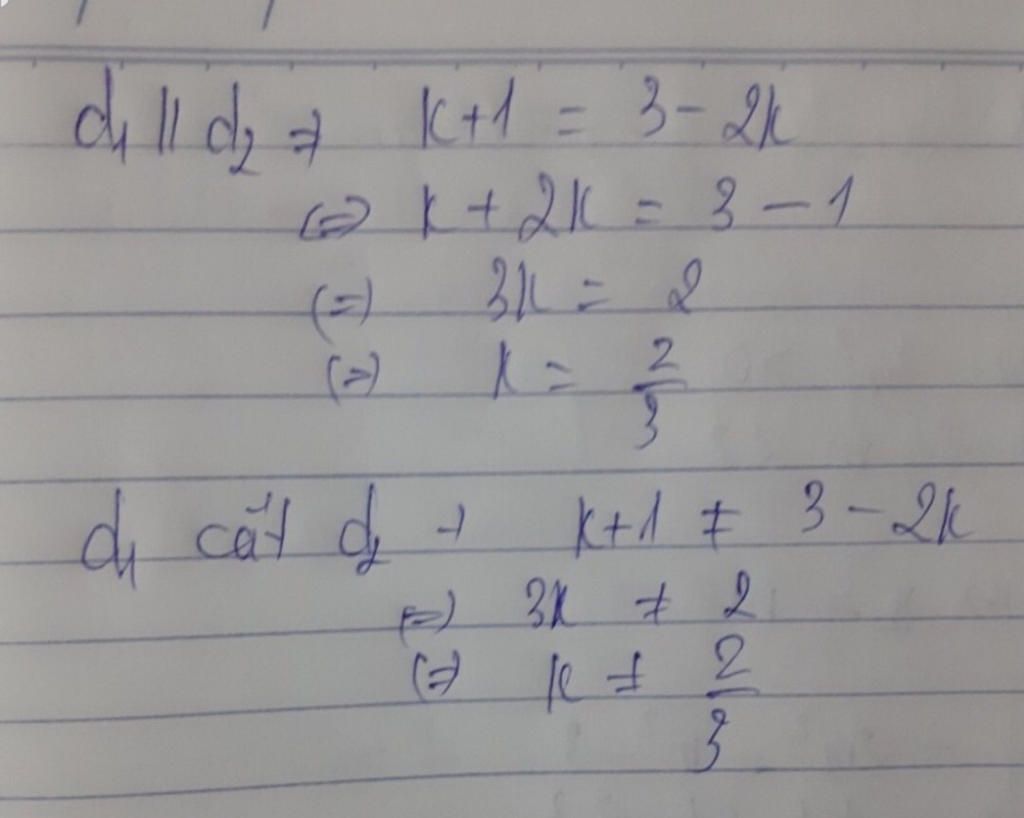 d₁ // d₂ => k+1 = 3 - 2k
<=> k + 2k = 3 - 1
<=> 3k = 2
<=> k = 2/3
d₁ cắt d₂ → k+1 ≠ 3 - 2k
<=> 3k ≠ 2
<=> k ≠ 2/3